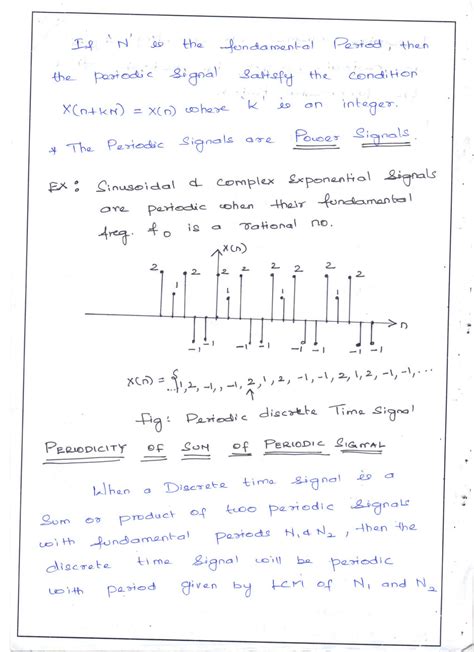 If 'N' is the fundamental Period, then
the periodic Signal Satisfy the condition
X(n+kN) = X(n) where 'k' is an integer.
* The Periodic Signals are Power Signals.
EX: Sinusoidal & complex Exponential Signals
are periodic when their fundamental
freq. f0 is a rational no.
X(n)
2 2 2 2 2 2 2 2
1 1 1 1
n
-1 -1 -1 -1 -1 -1 -1 -1
X(n) = {1, 2, -1, -1, 2, 1, 2, -1, -1, 2, 1, 2, -1, -1, ...
↑
Fig: Periodic discrete Time Signal
PERIODICITY OF SUM OF PERIODIC SIGNAL
When a Discrete time signal is a
Sum or product of two periodic Signals
with fundamental periods N1 & N2, then the
discrete time Signal will be periodic
with period given by LCM of N1 and N2